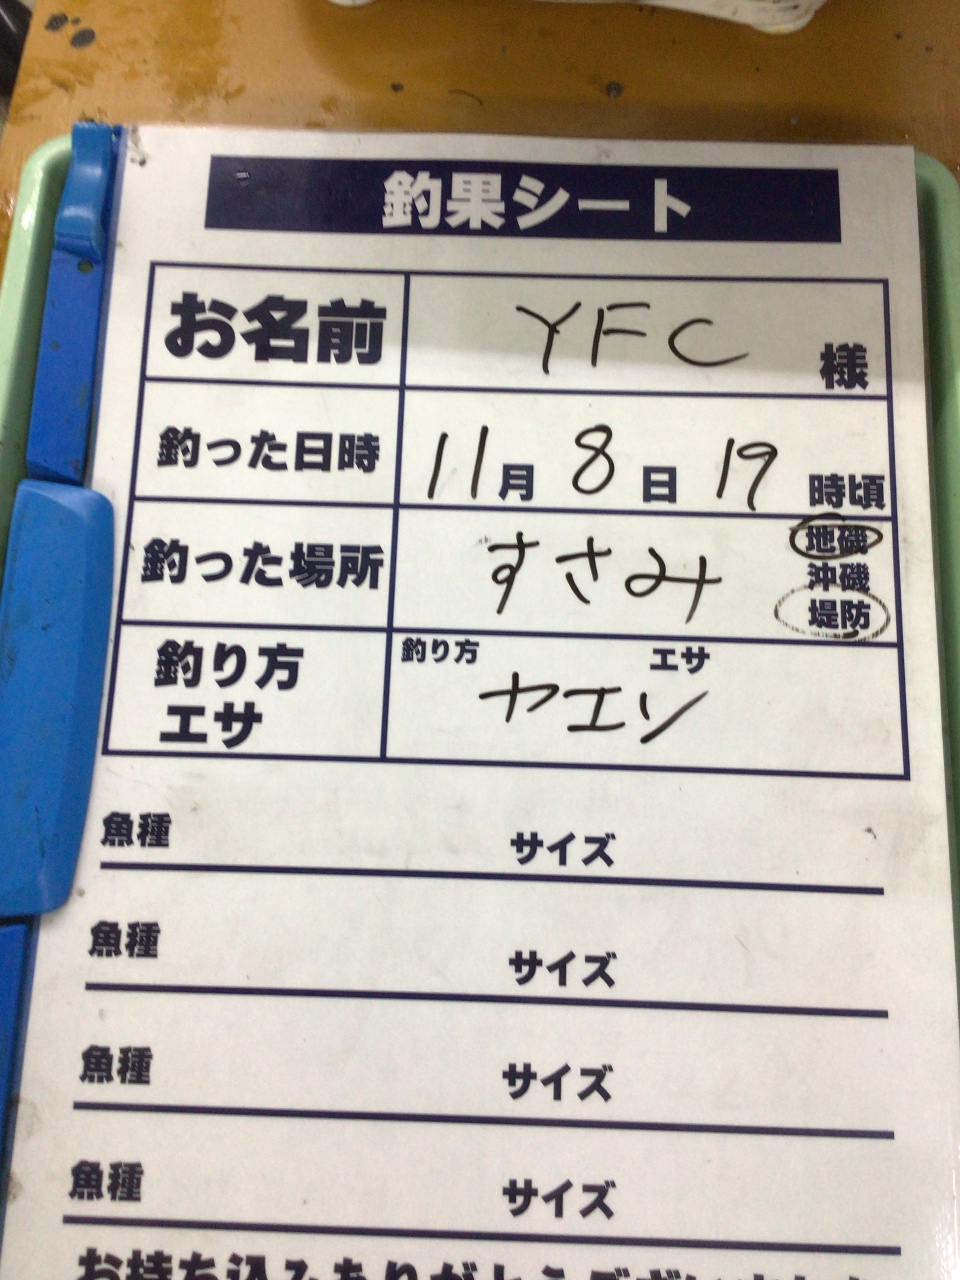 釣果シート
お名前 YFC 様
釣った日時 11月 8日 19時頃
釣った場所 すさみ 地磯
沖磯
堤防
釣り方 エサ
釣り方
エサ ヤエン
魚種 サイズ
魚種 サイズ
魚種 サイズ
魚種 サイズ
お持ち込みありがとうございました